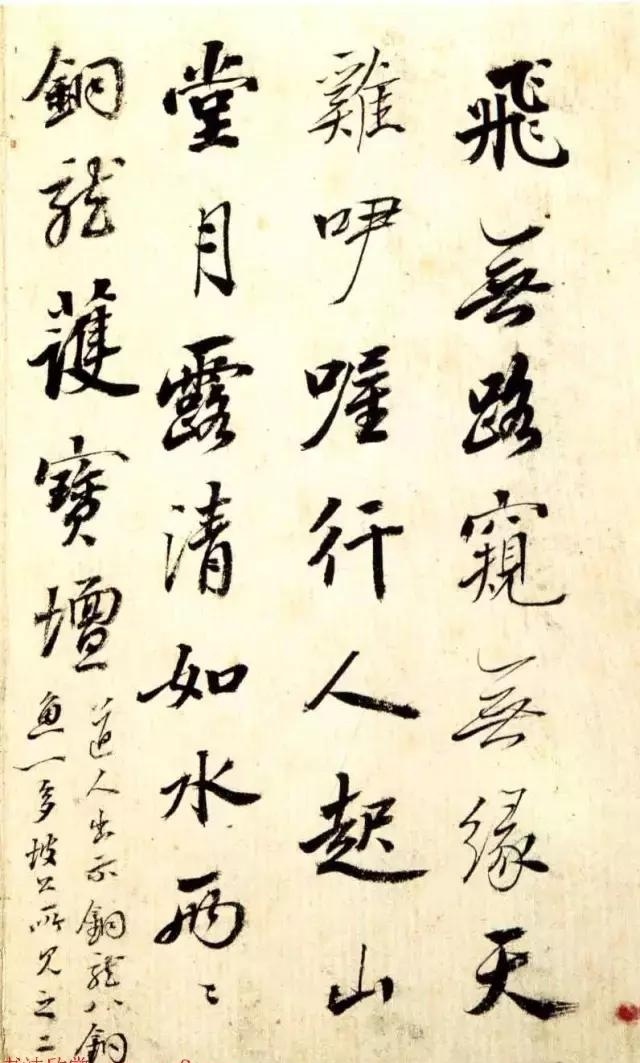 飛無路窺無緣天
雞吚喔行人起山
堂月露清如水兩〻
銅龍護寶壇
道人出示銅龍八銅
魚一多坡公所見之二